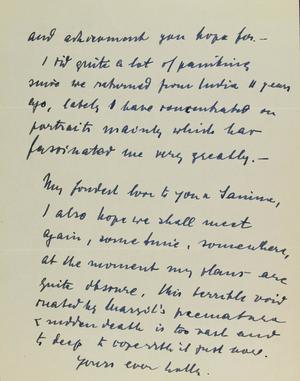 and achievement you hope for. —
I did quite a lot of painting
since we returned from India 11 years
ago, lately I have concentrated on
portraits mainly which has
fascinated me very greatly. —
My fondest love to you &
I also hope we shall meet
again, some time, somewhere,
at the moment my plans are
quite obscure, this terrible void
created by premature
& sudden death is too vast and
to deep to cope with it just now.
Yours ever